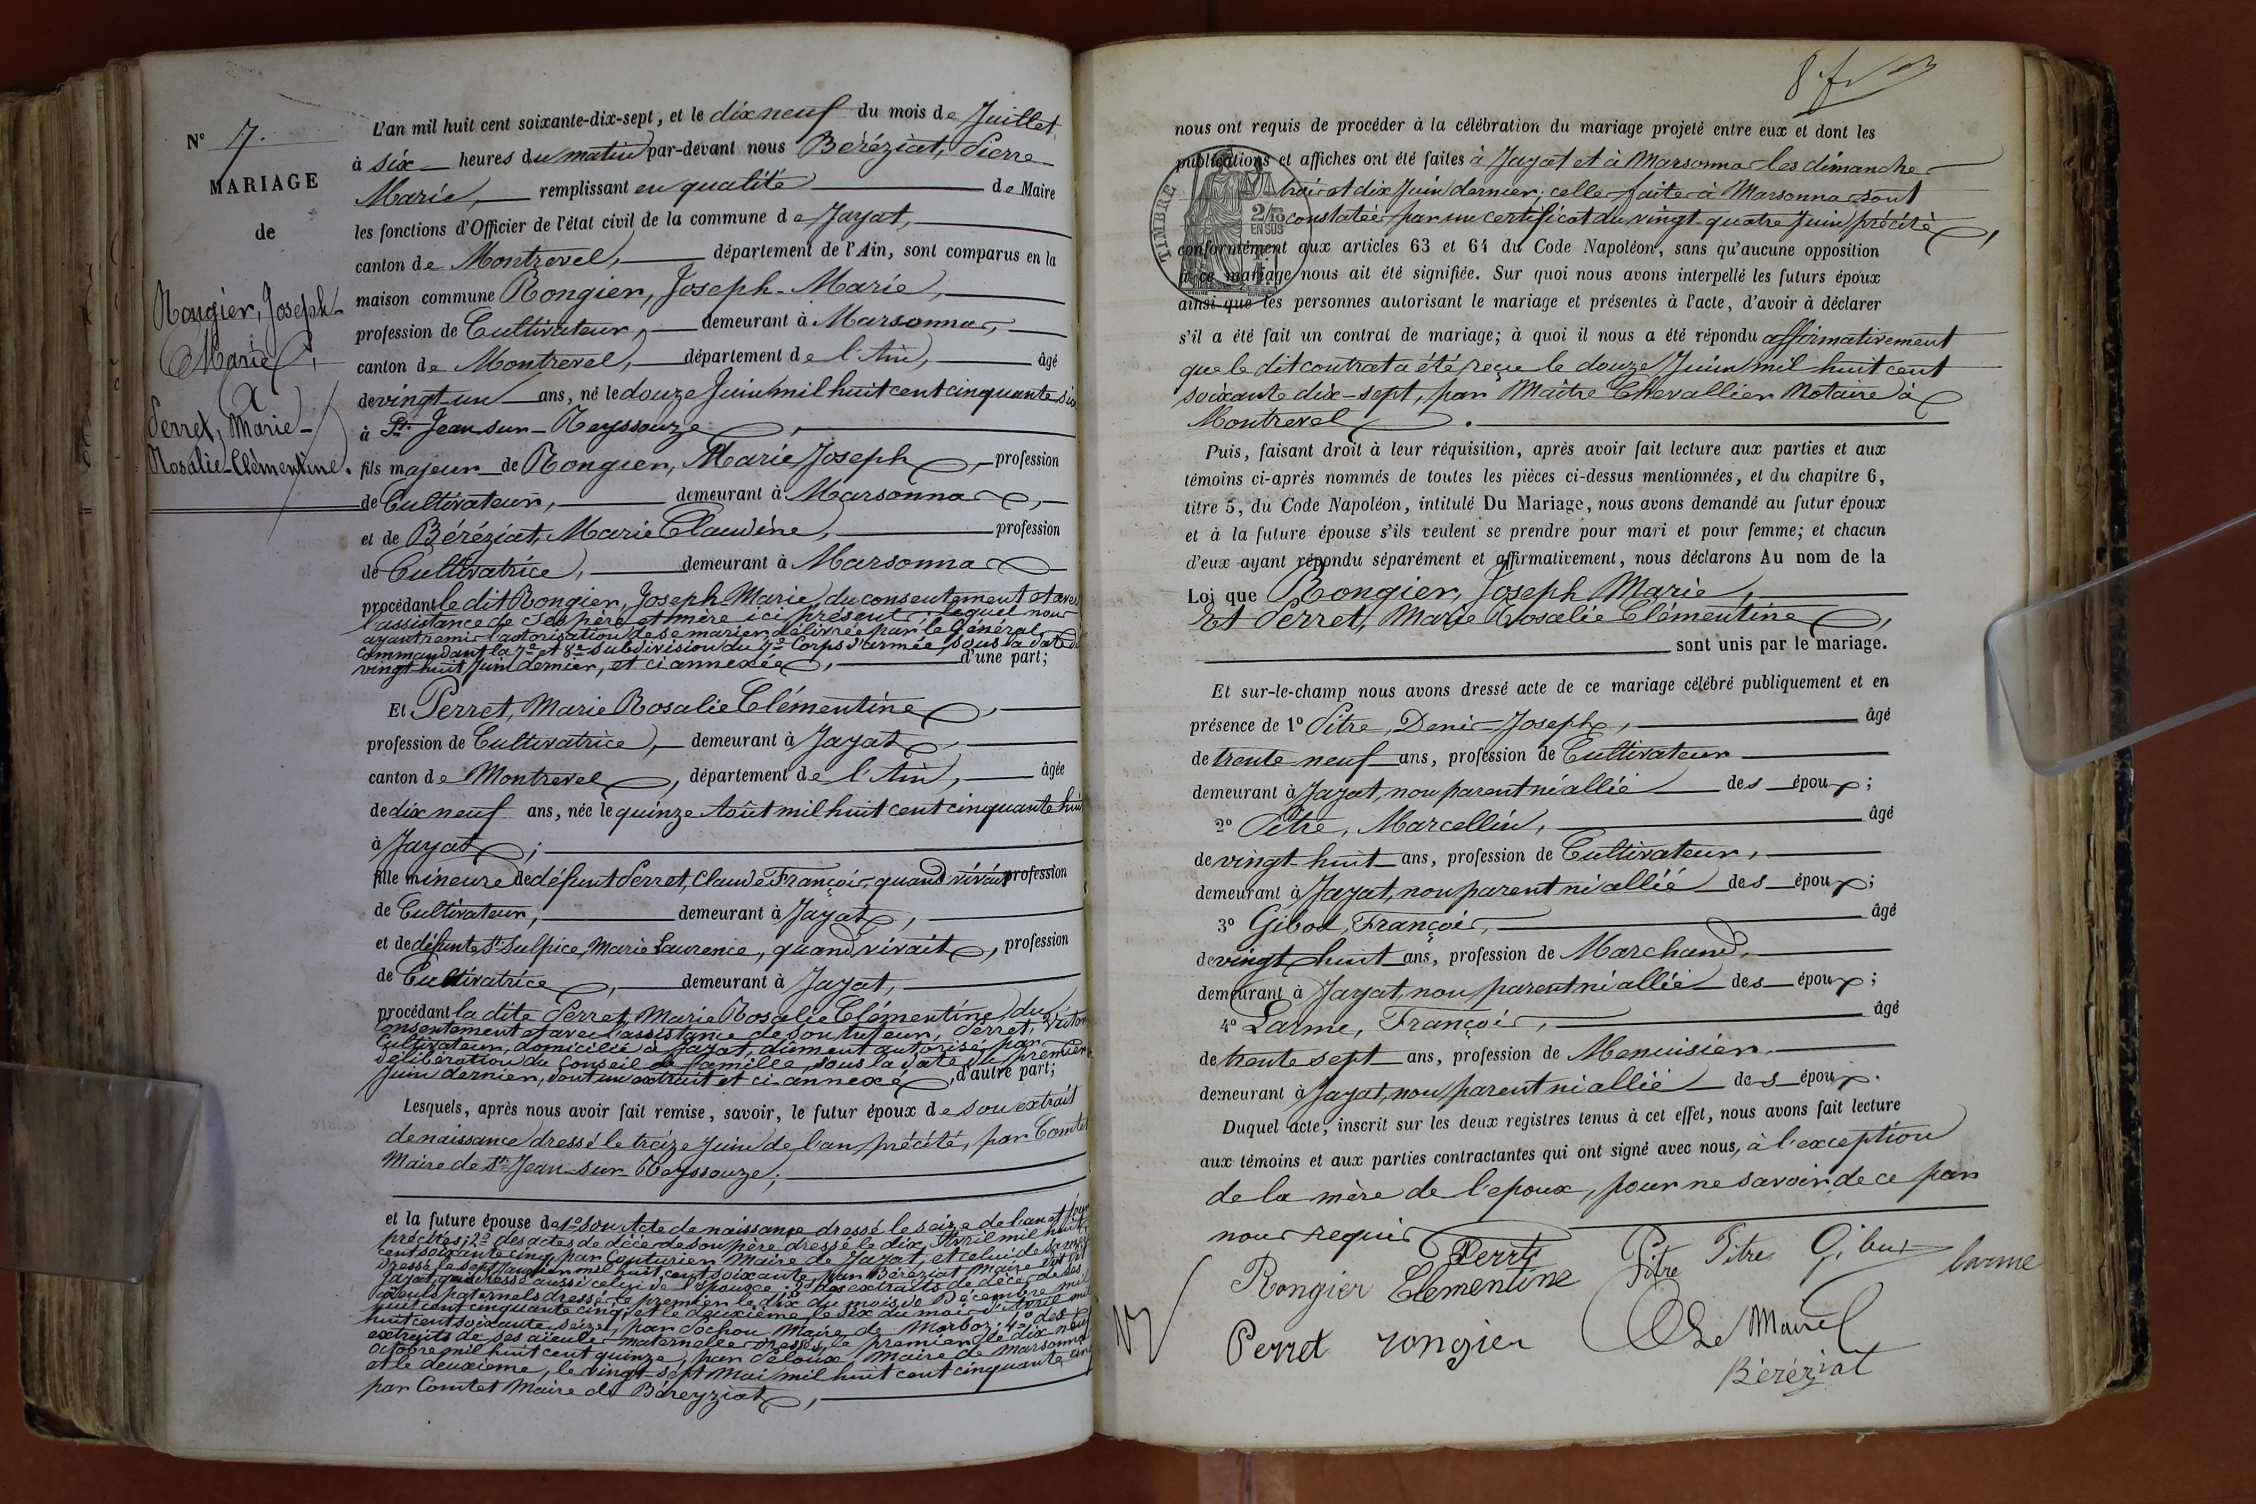 N° 7.
MARIAGE
de
Rongier, Joseph-
Marie,
&
Perret, Marie-
Rosalie-Clémentine.
L'an mil huit cent soixante-dix-sept, et le dix neuf du mois de Juillet
à six heures du matin par-devant nous Béréziat, Pierre
Marie, remplissant en qualité de Maire
les fonctions d'Officier de l'état civil de la commune de Jayat,
canton de Montrevel, département de l'Ain, sont comparus en la
maison commune Rongier, Joseph-Marie,
profession de Cultivateur, demeurant à Marsonnas,
canton de Montrevel, département de l'Ain, âgé
de vingt-un ans, né le douze Juin mil huit cent cinquante six
à St. Jean-sur-Reyssouze,
fils majeur de Rongier, Marie Joseph, profession
de Cultivateur, demeurant à Marsonnas,
et de Béréziat, Marie Claudine, profession
de Cultivatrice, demeurant à Marsonnas
procédant le dit Rongier, Joseph-Marie, du consentement et avec
l'assistance de ses père et mère ici présents; lequel nous
ayant remis l'autorisation de se marier, délivrée par le Général
Commandant la 7e et 8e subdivision du 7e Corps d'armée, sous la date du
vingt-huit Juin dernier, et ci annexée, d'une part;
Et Perret, Marie Rosalie Clémentine,
profession de Cultivatrice, demeurant à Jayat,
canton de Montrevel, département de l'Ain, âgée
de dix neuf ans, née le quinze Août mil huit cent cinquante huit
à Jayat;
fille mineure de défunt Perret, Claude François, quand vivait profession
de Cultivateur, demeurant à Jayat,
et de défunte St. Sulpice, Marie Laurence, quand vivait, profession
de Cultivatrice, demeurant à Jayat,
procédant la dite Perret, Marie Rosalie Clémentine, du
consentement et avec l'assistance de son tuteur, Perret, Victor
Cultivateur, domicilié à Jayat, dûment autorisé par
délibération du Conseil de famille, sous la date du premier
Juin dernier, dont un extrait et ci-annexé, d'autre part;
Lesquels, après nous avoir fait remise, savoir, le futur époux de son extrait
de naissance dressé le treize Juin de l'an précité, par Comtet
Maire de St. Jean-sur-Reyssouze;
et la future épouse de 1° son Acte de naissance dressé le seize de l'an et jour
précités; 2° des actes de décès de son père dressé le dix Avril mil huit
cent soixante cinq par Couturier Maire de Jayat, et celui de sa mère
dressé le sept Janvier mil huit cent soixante, par Béréziat Maire
Jayat, qui dressé aussi celui de l'épouse 3° des extraits de décès de ses
aieuls paternels dressés, le premier le dix du mois de Décembre mil
huit cent cinquante cinq, et le deuxième, le six du mois d'Avril mil
huit cent soixante seize, par Sochou Maire de Marboz; 4° des
extraits de ses aieuls maternelle dressés, le premier, le dix-neuf
octobre mil huit cent quinze, par Maire de Marsonnas
et le deuxième, le vingt-sept Mai mil huit cent cinquante cinq
par Comtet Maire de Béreyziat,
nous ont requis de procéder à la célébration du mariage projeté entre eux et dont les
publications et affiches ont été faites à Jayat et à Marsonnas les dimanche
trois et dix Juin dernier; celles faite à Marsonnas sont
constatées par un certificat du vingt-quatre Juin précité,
conformément aux articles 63 et 64 du Code Napoléon, sans qu'aucune opposition
à ce mariage nous ait été signifiée. Sur quoi nous avons interpellé les futurs époux
ainsi que les personnes autorisant le mariage et présentes à l'acte, d'avoir à déclarer
s'il a été fait un contrat de mariage; à quoi il nous a été répondu affirmativement
que le dit contrat a été reçu le douze Juin mil huit cent
soixante dix-sept, par Maître Chevallier Notaire à
Montrevel.
TIMBRE
2/10
EN SUS
Puis, faisant droit à leur réquisition, après avoir fait lecture aux parties et aux
témoins ci-après nommés de toutes les pièces ci-dessus mentionnées, et du chapitre 6,
titre 5, du Code Napoléon, intitulé Du Mariage, nous avons demandé au futur époux
et à la future épouse s'ils veulent se prendre pour mari et pour femme; et chacun
d'eux ayant répondu séparément et affirmativement, nous déclarons Au nom de la
Loi que Rongier, Joseph Marie,
Et Perret, Marie Rosalie Clémentine,
sont unis par le mariage.
Et sur-le-champ nous avons dressé acte de ce mariage célébré publiquement et en
présence de 1° Pitre, Denis-Joseph, âgé
de trente neuf ans, profession de Cultivateur
demeurant à Jayat, non parent ni allié des époux;
2° Pitre, Marcellin, âgé
de vingt-huit ans, profession de Cultivateur,
demeurant à Jayat, non parent ni allié des époux;
3° Gibod, François, âgé
de vingt huit ans, profession de Marchand,
demeurant à Jayat, non parent ni allié des époux;
4° Larme, François, âgé
de trente sept ans, profession de Menuisier
demeurant à Jayat, non parent ni allié des époux.
Duquel acte, inscrit sur les deux registres tenus à cet effet, nous avons fait lecture
aux témoins et aux parties contractantes qui ont signé avec nous, à l'exception
de la mère de l'époux, pour ne savoir de ce par
nous requis
Rongier Perret Clementine Pitre Pitre larme
Perret rongier Le Maire
Béréziat